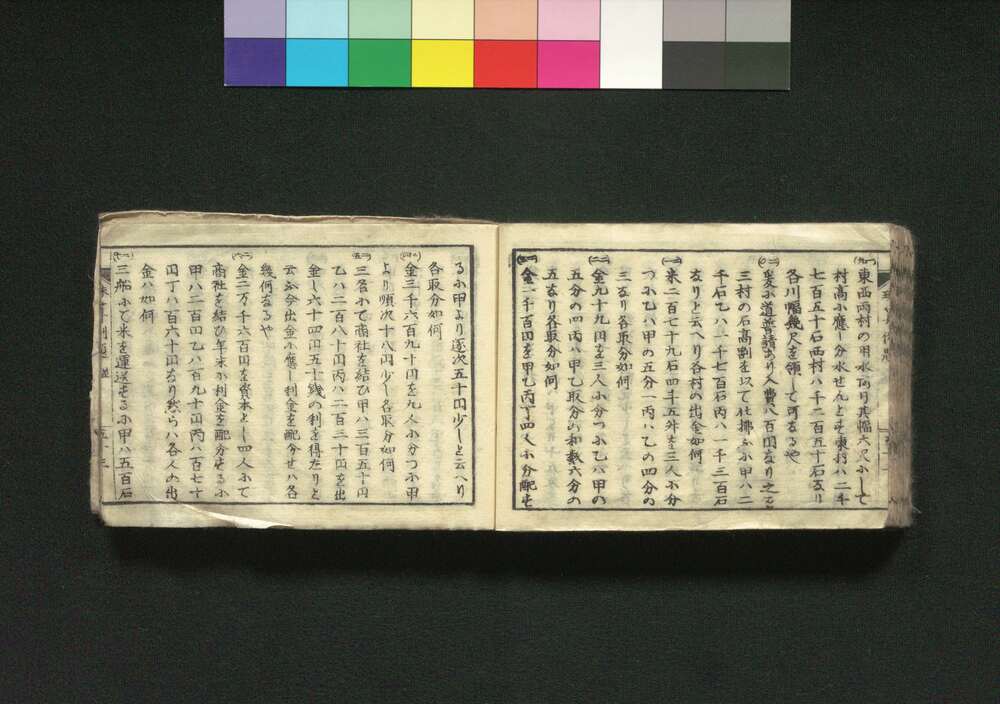 東西両村の用水あり其幅六尺にして
村高に應し分水せんとす東村ハ二千
七百五十石西村ハ千二百五十石なり
各川幅幾尺を領して可なるや
爰に道普請あり入費八百円なり之を
三村の石高割を以て仕拂ふに甲ハ二
千石乙ハ一千七百石丙ハ一千三百石
なりと云へり各村の出金如何
米二百七十九石四斗五舛を三人に分
つに乙ハ甲の五分一丙ハ乙の四分の
三なり各取分如何
金九十九円を三人に分つに乙ハ甲の
五分の四丙ハ甲乙取分の和数六分の
五なり各取分如何
金一千百円を甲乙丙丁四人に分配せ
るに甲より逐次五十円少しと云へり
各取分如何
金三千六百九十円を九人に分つに甲
より順次十八円少し各取分如何
三名にて商社を結ひ甲ハ三百五十円
乙ハ二百八十円丙ハ二百三十円を出
金し六十四円五十銭の利を得たりと
云ふ今出金に應し利金を配分せハ各
幾何なるや
金二万千六百円を資本とし四人にて
商社を結ひ年末に利金を配分せるに
甲ハ二百円乙ハ百九十円丙ハ百七十
円丁ハ百六十円なり然らハ各人の出
金ハ如何
三船にて米を運送せるに甲ハ五百石